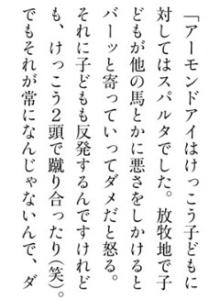 「アーモンドアイはけっこう子どもに
対してはスパルタでした。放牧地で子
どもが他の馬とかに悪さをしかけると
バーッと寄っていってダメだと怒る。
それに子どもも反発するんですけれど
も、けっこう2頭で蹴り合ったり(笑)。
でもそれが常になんじゃないんで、ダ